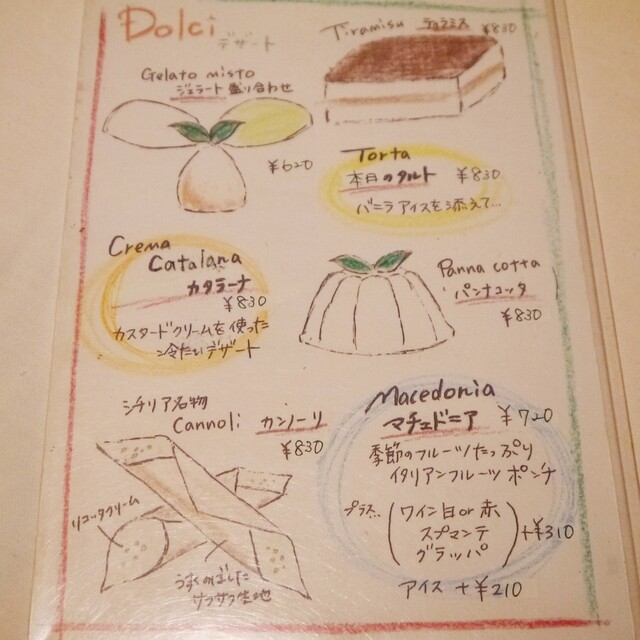 Dolci デザート
Tiramisu ティラミス ¥830
Gelato misto
ジェラート盛り合わせ
¥620
Torta
本日のタルト ¥830
バニラアイスを添えて…
Crema
Catalana
カタラーナ
¥830
カスタードクリームを使った
冷たいデザート
Panna cotta
パンナコッタ
¥830
シチリア名物
Cannoli カンノーリ
¥830
リコッタクリーム
うすくのばした
サクサク生地
Macedonia
マチェドニア ¥720
季節のフルーツたっぷり
イタリアンフルーツポンチ
プラス… (ワイン白or赤
スプマンテ
グラッパ) +¥310
アイス +¥210